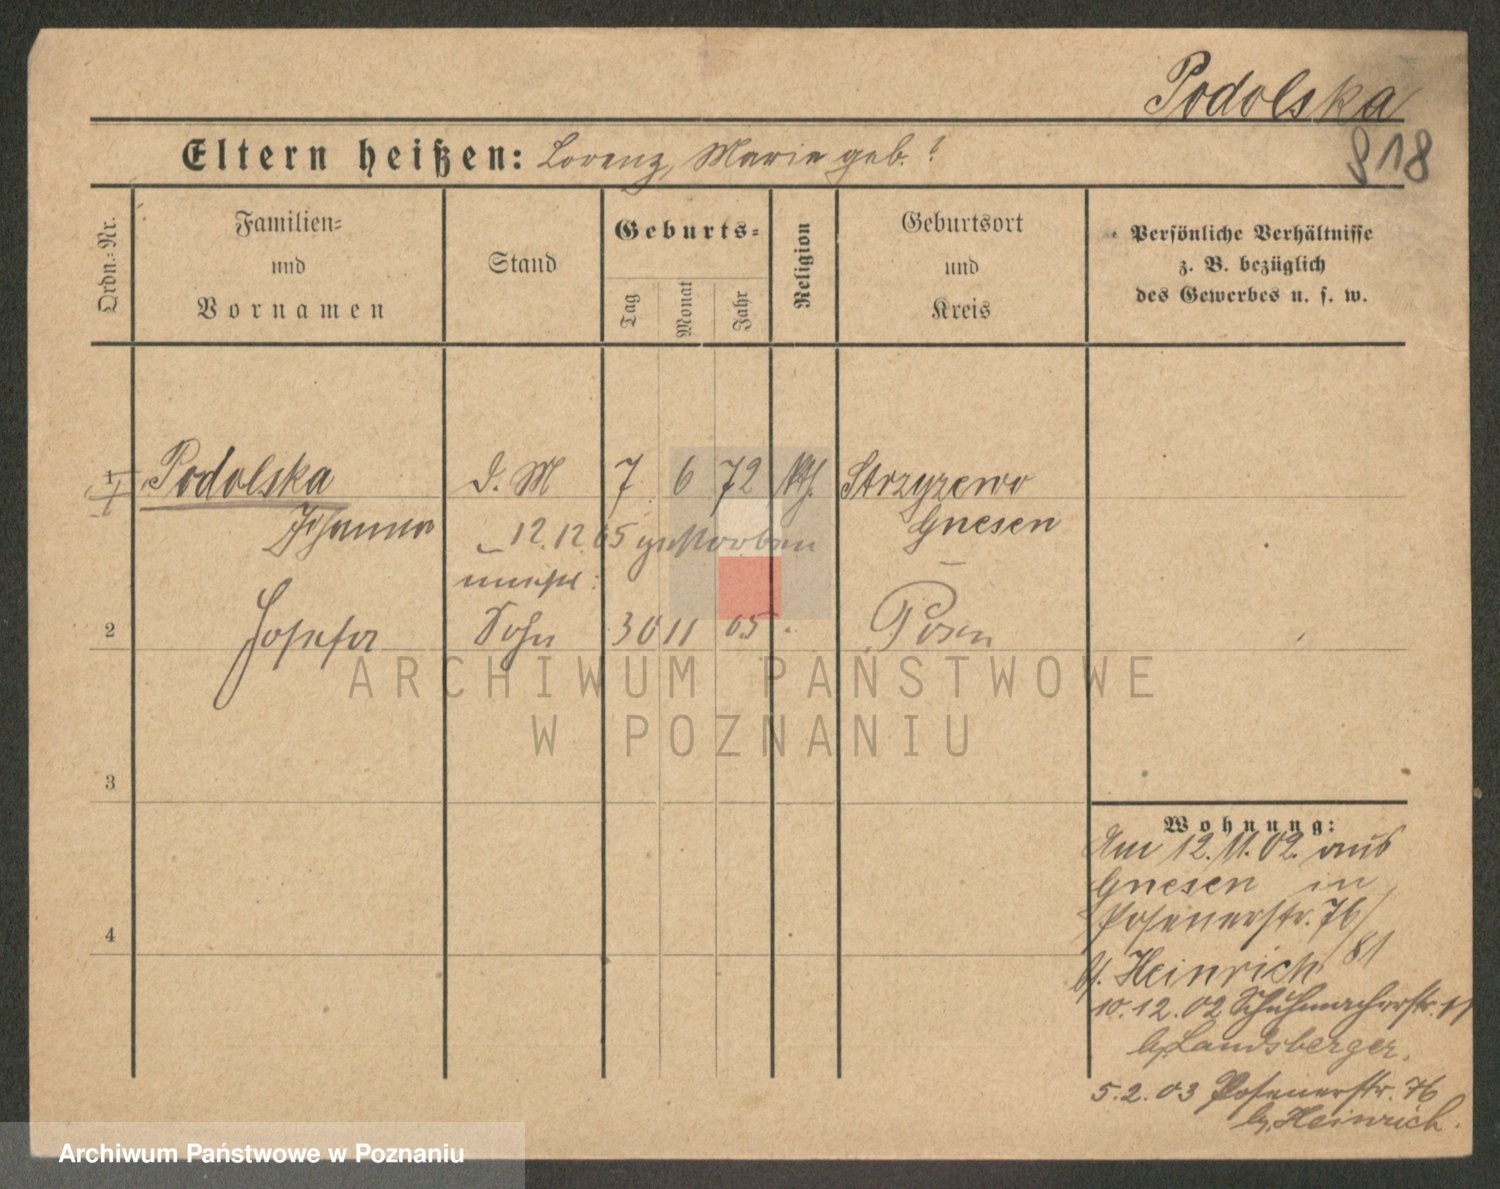 Podolska
918
Eltern heißen: Lorenz, Marie geb. ?
Ordn.-Nr.
Familien-
und
Vornamen
Stand
Geburts-
Tag
Monat
Jahr
Religion
Geburtsort
und
Kreis
Persönliche Verhältnisse
z. B. bezüglich
des Gewerbes u. s. w.
1 Podolska d. M 7 6 72 kth. Strzyzewo
Johanna Gnesen
12.12.05 gestorben
unehl:
2 Sohn 30 11 05 Posen
3
4
ARCHIWUM PAŃSTWOWE
W POZNANIU
Wohnung:
Am 12.11.02. aus
Gnesen in
Posenerstr. 76/
b/. Heinrich /81
10.12.02 Schuhmacherstr. 11
b/. Landsberger.
5.2.03 Posenerstr. 76
b/. Heinrich.
Archiwum Państwowe w Poznaniu